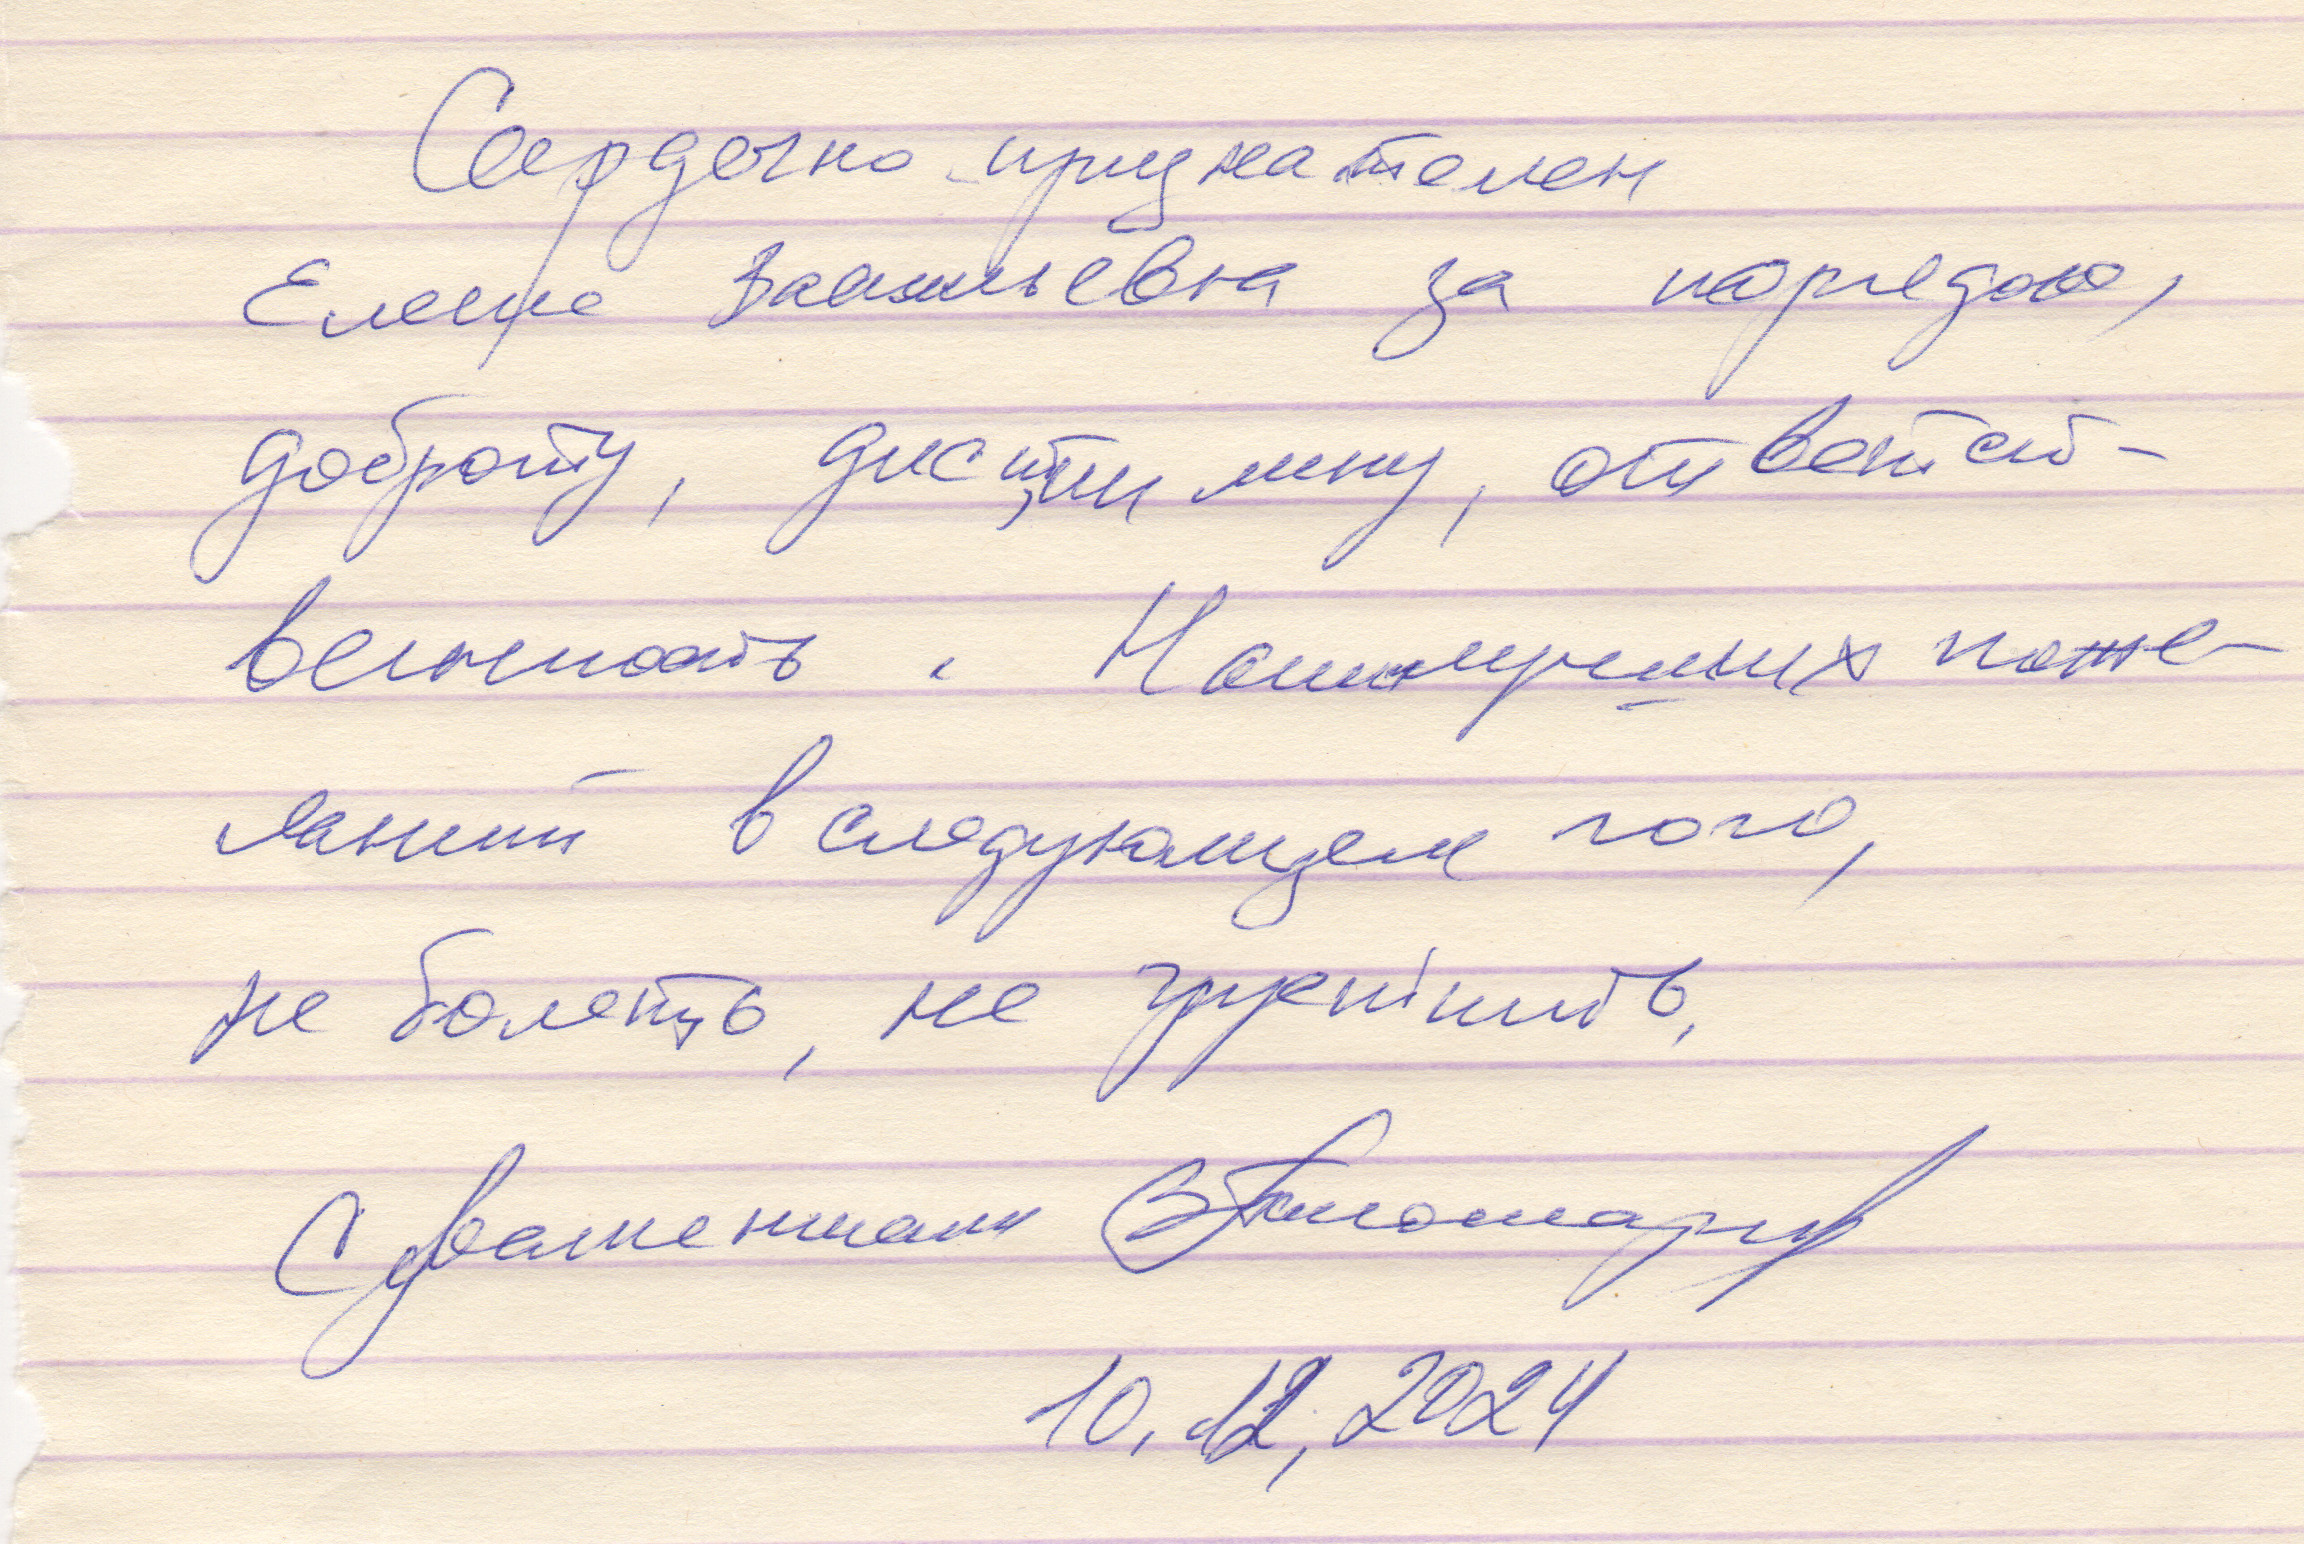 Сердечно признателен
Елене Васильевна за
доброту, дисциплину, ответст-
венность. Наилучших поже-
ланий в следующем
не болеть, не грустить,
С уважением
10.12.2024